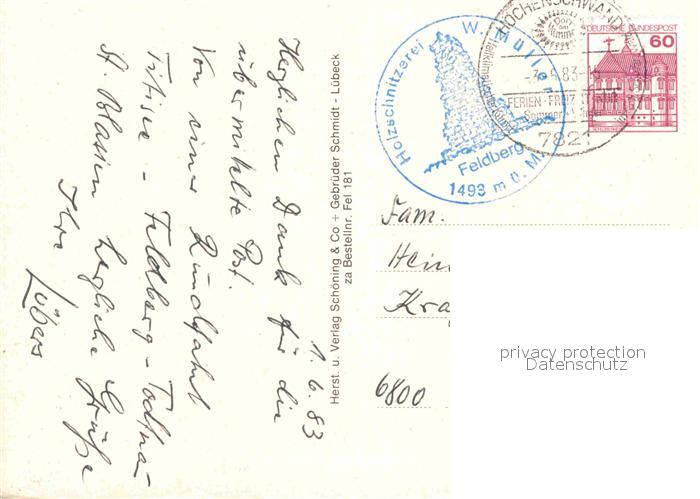 1. 6. 83
Herzlichen Dank für die
übermittelte Post.
Von einer Rundfahrt
Titisee - Feldberg - Todtna-
St. Blasien herzliche Grüße
Ihre Lübers
Herst. u. Verlag Schöning & Co + Gebrüder Schmidt - Lübeck
za Bestellnr. Fel 181
Holzschnitzerei W. Müller
Feldberg
1493 m ü. M.
HÖCHENSCHWAND
Dorf am Himmel
Heilklimatischer
83
FERIEN
Sommer
7821
DEUTSCHE BUNDESPOST
60
Fam.
Hein
Kra
6800
privacy protection
Datenschutz